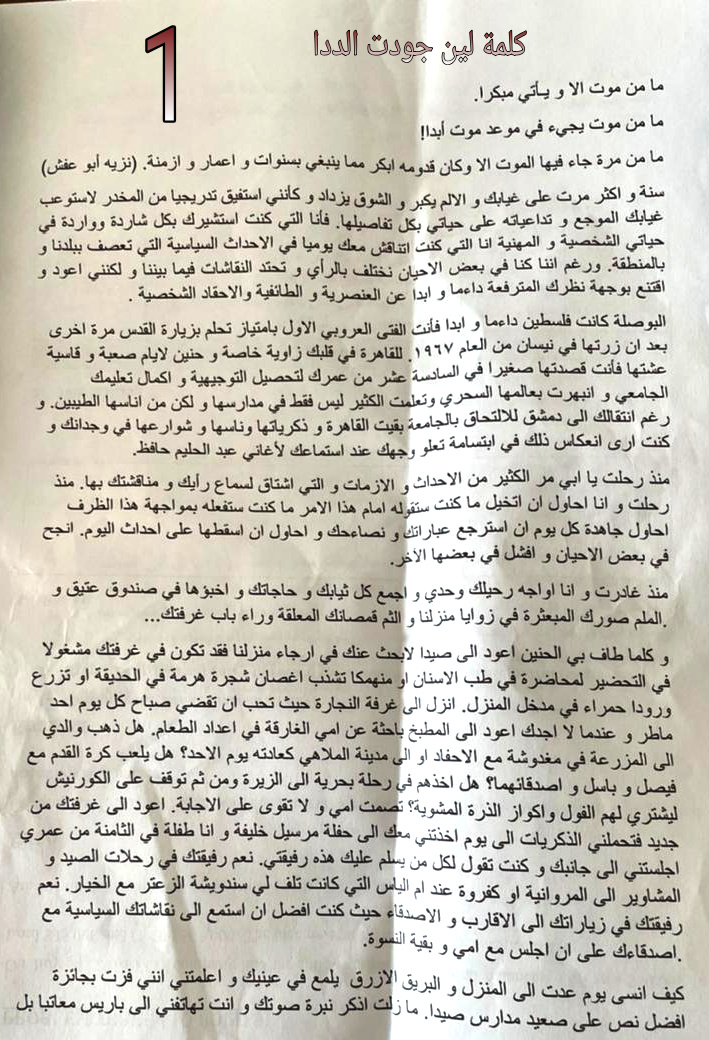 كلمة لين جودت الددا
1
ما من موت الا و يأتي مبكرا.
ما من موت يجيء في موعد موت أبدا!
ما من مرة جاء فيها الموت الا وكان قدومه ابكر مما ينبغي بسنوات و اعمار و ازمنة. (نزيه أبو عفش)
سنة و اكثر مرت على غيابك و الالم يكبر و الشوق يزداد و كأنني استفيق تدريجيا من المخدر لاستوعب
غيابك الموجع و تداعياته على حياتي بكل تفاصيلها. فأنا التي كنت استشيرك بكل شاردة وواردة في
حياتي الشخصية و المهنية انا التي كنت اتناقش معك يوميا في الاحداث السياسية التي تعصف ببلدنا و
بالمنطقة. ورغم اننا كنا في بعض الاحيان نختلف بالرأي و تحتد النقاشات فيما بيننا و لكنني اعود و
اقتنع بوجهة نظرك المترفعة داءما و ابدا عن العنصرية و الطائفية والاحقاد الشخصية .
البوصلة كانت فلسطين داءما و ابدا فأنت الفتى العروبي الاول بامتياز تحلم بزيارة القدس مرة اخرى
بعد ان زرتها في نيسان من العام ١٩٦٧. للقاهرة في قلبك زاوية خاصة و حنين لايام صعبة و قاسية
عشتها فأنت قصدتها صغيرا في السادسة عشر من عمرك لتحصيل التوجيهية و اكمال تعليمك
الجامعي و انبهرت بعالمها السحري وتعلمت الكثير ليس فقط في مدارسها و لكن من اناسها الطيبين. و
رغم انتقالك الى دمشق للالتحاق بالجامعة بقيت القاهرة و ذكرياتها وناسها و شوارعها في وجدانك و
كنت ارى انعكاس ذلك في ابتسامة تعلو وجهك عند استماعك لأغاني عبد الحليم حافظ.
منذ رحلت يا ابي مر الكثير من الاحداث و الازمات و التي اشتاق لسماع رأيك و مناقشتك بها. منذ
رحلت و انا احاول ان اتخيل ما كنت ستقوله امام هذا الامر ما كنت ستفعله بمواجهة هذا الظرف
احاول جاهدة كل يوم ان استرجع عباراتك و نصاءحك و احاول ان اسقطها على احداث اليوم. انجح
في بعض الاحيان و افشل في بعضها الآخر.
منذ غادرت و انا اواجه رحيلك وحدي و اجمع كل ثيابك و حاجاتك و اخبؤها في صندوق عتيق و
.الملم صورك المبعثرة في زوايا منزلنا و الثم قمصانك المعلقة وراء باب غرفتك...
و كلما طاف بي الحنين اعود الى صيدا لابحث عنك في ارجاء منزلنا فقد تكون في غرفتك مشغولا
في التحضير لمحاضرة في طب الاسنان او منهمكا تشذب اغصان شجرة هرمة في الحديقة او تزرع
ورودا حمراء في مدخل المنزل. انزل الى غرفة النجارة حيث تحب ان تقضي صباح كل يوم احد
ماطر و عندما لا اجدك اعود الى المطبخ باحثة عن امي الغارقة في اعداد الطعام. هل ذهب والدي
الى المزرعة في مغدوشة مع الاحفاد او الى مدينة الملاهي كعادته يوم الاحد؟ هل يلعب كرة القدم مع
فيصل و باسل و اصدقائهما؟ هل اخذهم في رحلة بحرية الى الزيرة ومن ثم توقف على الكورنيش
ليشتري لهم الفول واكواز الذرة المشوية؟ تصمت امي و لا تقوى على الاجابة. اعود الى غرفتك من
جديد فتحملني الذكريات الى يوم اخذتني معك الى حفلة مرسيل خليفة و انا طفلة في الثامنة من عمري
اجلستني الى جانبك و كنت تقول لكل من يسلم عليك هذه رفيقتي. نعم رفيقتك في رحلات الصيد و
المشاوير الى المروانية او كفروة عند ام الياس التي كانت تلف لي سندويشة الزعتر مع الخيار. نعم
رفيقتك في زياراتك الى الاقارب و الاصدقاء حيث كنت افضل ان استمع الى نقاشاتك السياسية مع
.اصدقاءك على ان اجلس مع امي و بقية النسوة.
كيف انسى يوم عدت الى المنزل و البريق الازرق يلمع في عينيك و اعلمتني انني فزت بجائزة
افضل نص على صعيد مدارس صيدا. ما زلت اذكر نبرة صوتك و انت تهاتفني الى باريس معاتبا بل